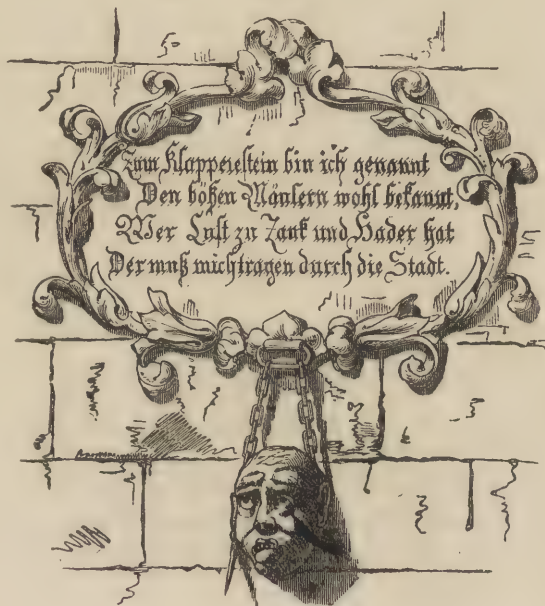 Zum Klapperestein bin ich genannt
Den bößen Mäulern wohl bekannt,
Wer Lust zu Zank und Hader hat
Der muß mich tragen durch die Stadt.